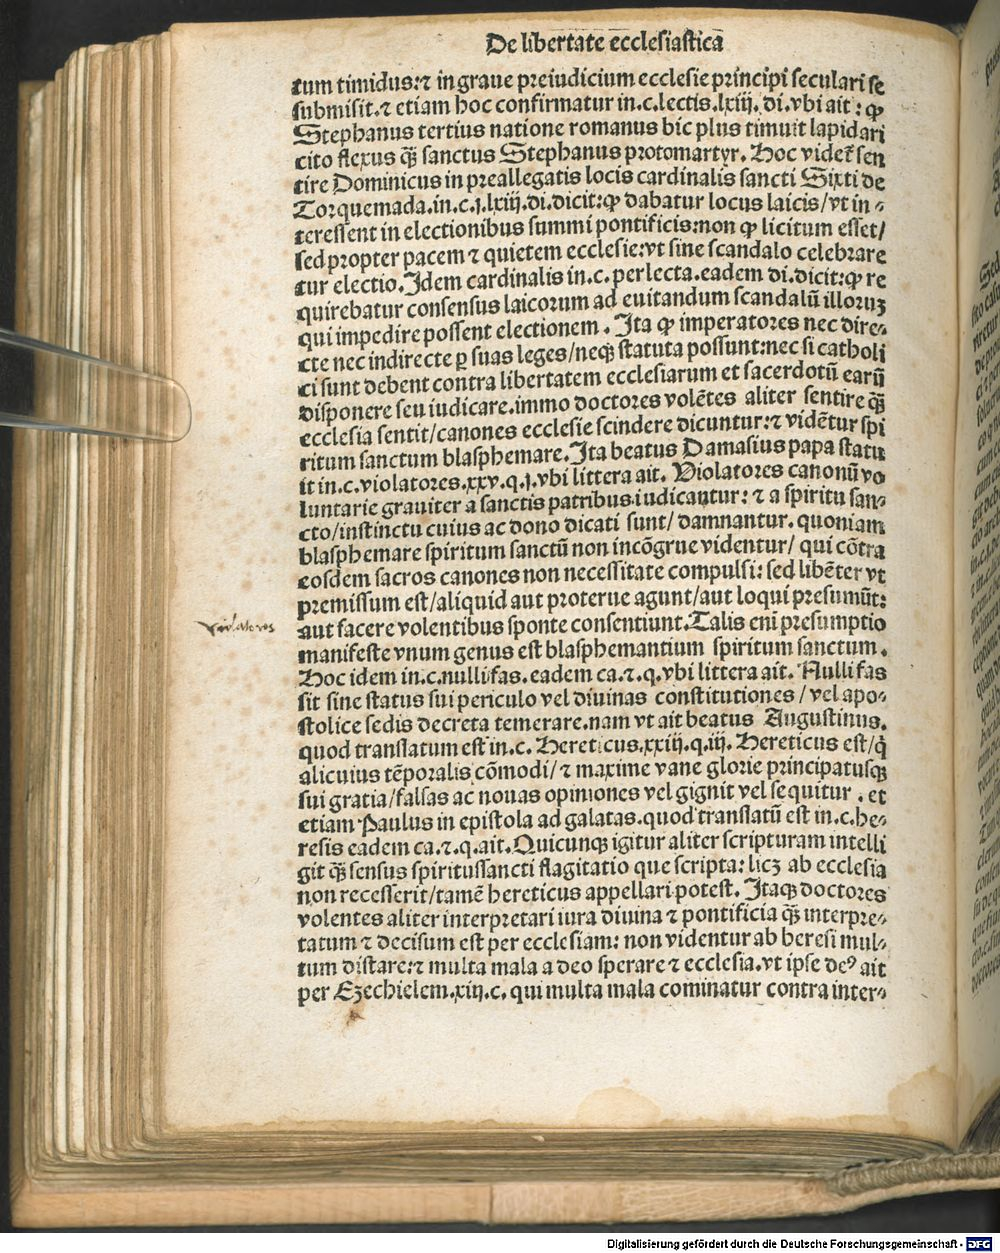 De libertate ecclesiastica
tum timidus:⁊ in graue preiudicium ecclesie principi seculari se
submisit.⁊ etiam hoc confirmatur in.c.lectis.lxiij.di.vbi ait : ꝙ
Stephanus tertius natione romanus hic plus timuit lapidari
cito flexus q̃ꝫ sanctus Stephanus protomartyr. Hoc videt᷑ sen
tire Dominicus in preallegatis locis cardinalis sancti Sixti de
Torquemada.in.c.j.lxiij.di.dicit:ꝙ dabatur locus laicis/vt in⸗
teressent in electionibus summi pontificis:non ꝙ licitum esset/
sed propter pacem ⁊ quietem ecclesie:vt sine scandalo celebrare
tur electio.Idem cardinalis in.c.perlecta.eadem di.dicit:ꝙ re
quirebatur consensus laicorum ad euitandum scandalū illoruꝫ
qui impedire possent electionem. Ita ꝙ imperatores nec dire⸗
cte nec indirecte ꝑ suas leges/neqꝫ statuta possunt:nec si catholi
ci sunt debent contra libertatem ecclesiarum et sacerdotū earū
disponere seu iudicare.immo doctores volētes aliter sentire q̃ꝫ
ecclesia sentit/canones ecclesie scindere dicuntur:⁊ vidētur spi
ritum sanctum blasphemare.Ita beatus Damasius papa statu
it in.c.violatores.xxv.q.j.vbi littera ait. Violatores canonū vo
luntarie grauiter a sanctis patribus iudicantur: ⁊ a spiritu san⸗
cto/instinctu cuius ac dono dicati sunt/damnantur. quoniam
blasphemare spiritum sanctū non incōgrue videntur/ qui cōtra
eosdem sacros canones non necessitate compulsi: sed libēter vt
premissum est/aliquid aut proterue agunt/aut loqui presumūt:
violatores
aut facere volentibus sponte consentiunt.Talis enī presumptio
manifeste vnum genus est blasphemantium spiritum sanctum.
Hoc idem in.c.nulli fas. eadem ca.⁊.q.vbi littera ait. Nulli fas
sit sine status sui periculo vel diuinas constitutiones / vel apo⸗
stolice sedis decreta temerare.nam vt ait beatus Augustinus.
quod translatum est in.c. Hereticus.xxiij.q.iij. Hereticus est/q̇
alicuius tēporalis cōmodi/ ⁊ maxime vane glorie principatusqꝫ
sui gratia/falsas ac nouas opiniones vel gignit vel sequitur . et
etiam Paulus in epistola ad galatas.quod translatū est in.c.he⸗
resis eadem ca.⁊.q.ait.Quicunqꝫ igitur aliter scripturam intelli
git q̃ꝫ sensus spiritussancti flagitatio que scripta: licꝫ ab ecclesia
non recesserit/tamē hereticus appellari potest. Itaqꝫ doctores
volentes aliter interpretari iura diuina ⁊ pontificia q̃ꝫ interpre⸗
tatum ⁊ decisum est per ecclesiam: non videntur ab heresi mul⸗
tum distare:⁊ multa mala a deo sperare ⁊ ecclesia.vt ipse deꝰ ait
per Ezechielem.xiij.c. qui multa mala cominatur contra inter⸗
Digitalisierung gefördert durch die Deutsche Forschungsgemeinschaft - DFG